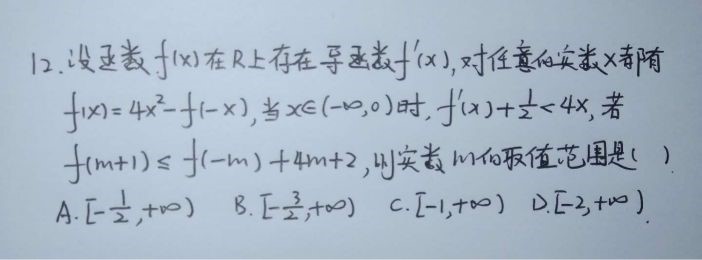 12.设函数f(x)在R上存在导函数f'(x),对任意的实数x都有
f(x)=4x²-f(-x),当x∈(-∞,0)时,f'(x)+½<4x,若
f(m+1)≤f(-m)+4m+2,则实数m的取值范围是( )
A.[-½,+∞) B.[-3/2,+∞) C.[-1,+∞) D.[-2,+∞)